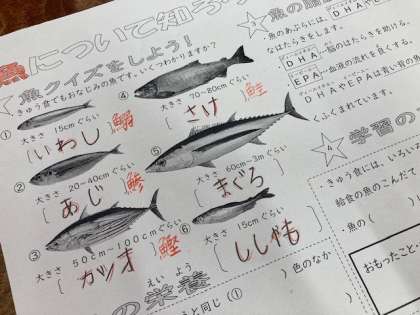 魚について知ろう
魚クイズをしよう！
きゅう食でもおなじみの魚です。いくつわかりますか？
①
大きさ 15cmぐらい
[いわし] 鰯
②
大きさ 20~40cmぐらい
[あじ] 鯵
③
大きさ 50cm~100cmぐらい
[カツオ] 鰹
④
大きさ 70~80cmぐらい
[さけ] 鮭
⑤
大きさ 60cm~3mぐらい
[まぐろ]
⑥
大きさ 15cmぐらい
[ししゃも]
魚の脂
魚のあぶらには、DHA
なはたらきをします。
DHA…脳のはたらきを助ける。
EPA…血液の流れを良くする。
DHAやEPAは青い背の魚
くふくまれています。
学習の
きゅう食には、いろい
給食の魚のこんだて
魚の（
おもったこと・
えいよう
の栄養
と同じ（①　）色のなか